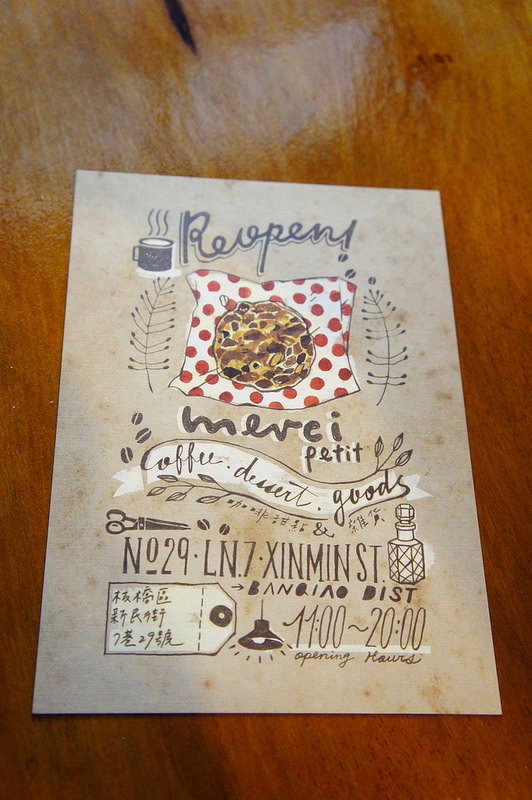 Reopen!
merci
petit
Coffee. dessert. goods
咖啡甜點 & 雜貨
No29·LN.7·XINMIN ST.
→BANQIAO DIST
板橋區
新民街
7巷29號
11:00~20:00
opening Hours